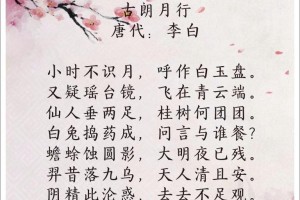 古朗月行
唐代：李白
小时不识月，呼作白玉盘。
又疑瑶台镜，飞在青云端。
仙人垂两足，桂树何团团。
白兔捣药成，问言与谁餐？
蟾蜍蚀圆影，大明夜已残。
羿昔落九乌，天人清且安。
阴精此沦惑，去去不足观。